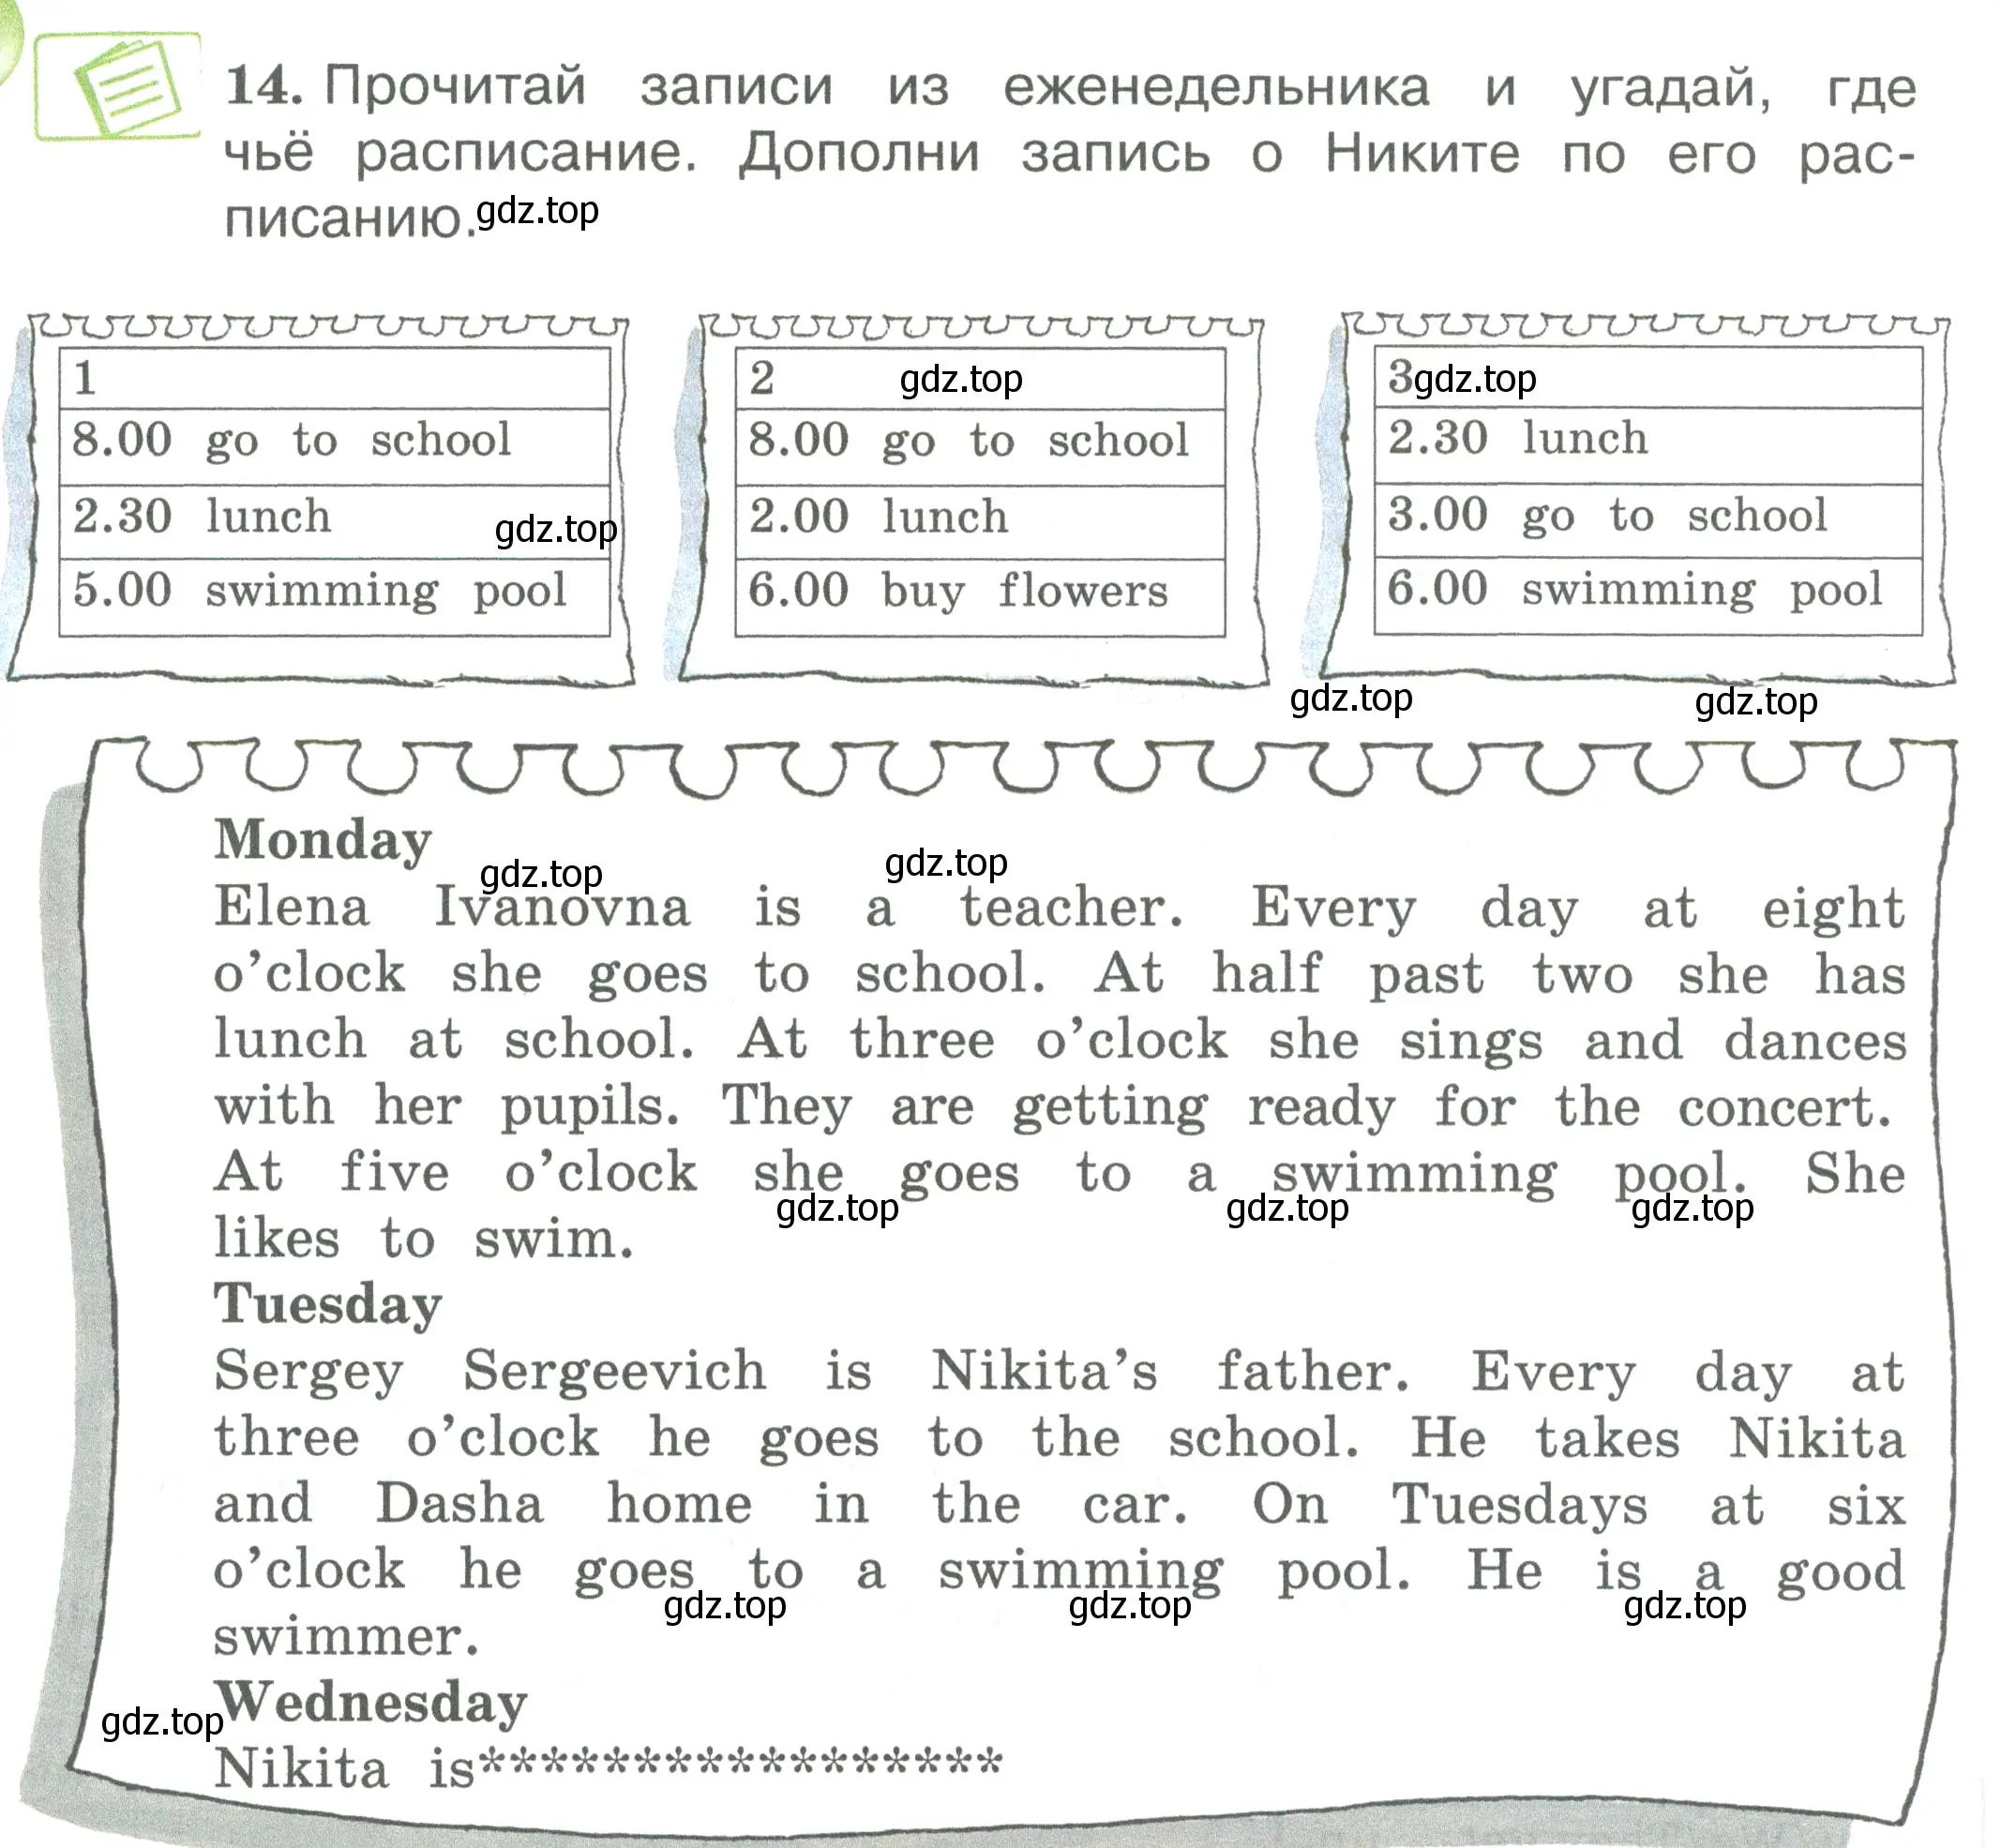 14. Прочитай записи из еженедельника и угадай, где
чьё расписание. Дополни запись о Никите по его рас-
писанию.
gdz.top
1
8.00 go to school
2.30 lunch
gdz.top
5.00 swimming pool
2
gdz.top
8.00 go to school
2.00 lunch
6.00 buy flowers
3
gdz.top
2.30 lunch
3.00 go to school
6.00 swimming pool
gdz.top
gdz.top
Monday
gdz.top
gdz.top
Elena Ivanovna is a teacher. Every day at eight
o’clock she goes to school. At half past two she has
lunch at school. At three o’clock she sings and dances
with her pupils. They are getting ready for the concert.
At five o’clock she goes to a swimming pool. She
gdz.top
gdz.top
gdz.top
likes to swim.
Tuesday
Sergey Sergeevich is Nikita’s father. Every day at
three o’clock he goes to the school. He takes Nikita
and Dasha home in the car. On Tuesdays at six
o’clock he goes to a swimming pool. He is a good
gdz.top
gdz.top
gdz.top
swimmer.
Wednesday
gdz.top
Nikita is*****************